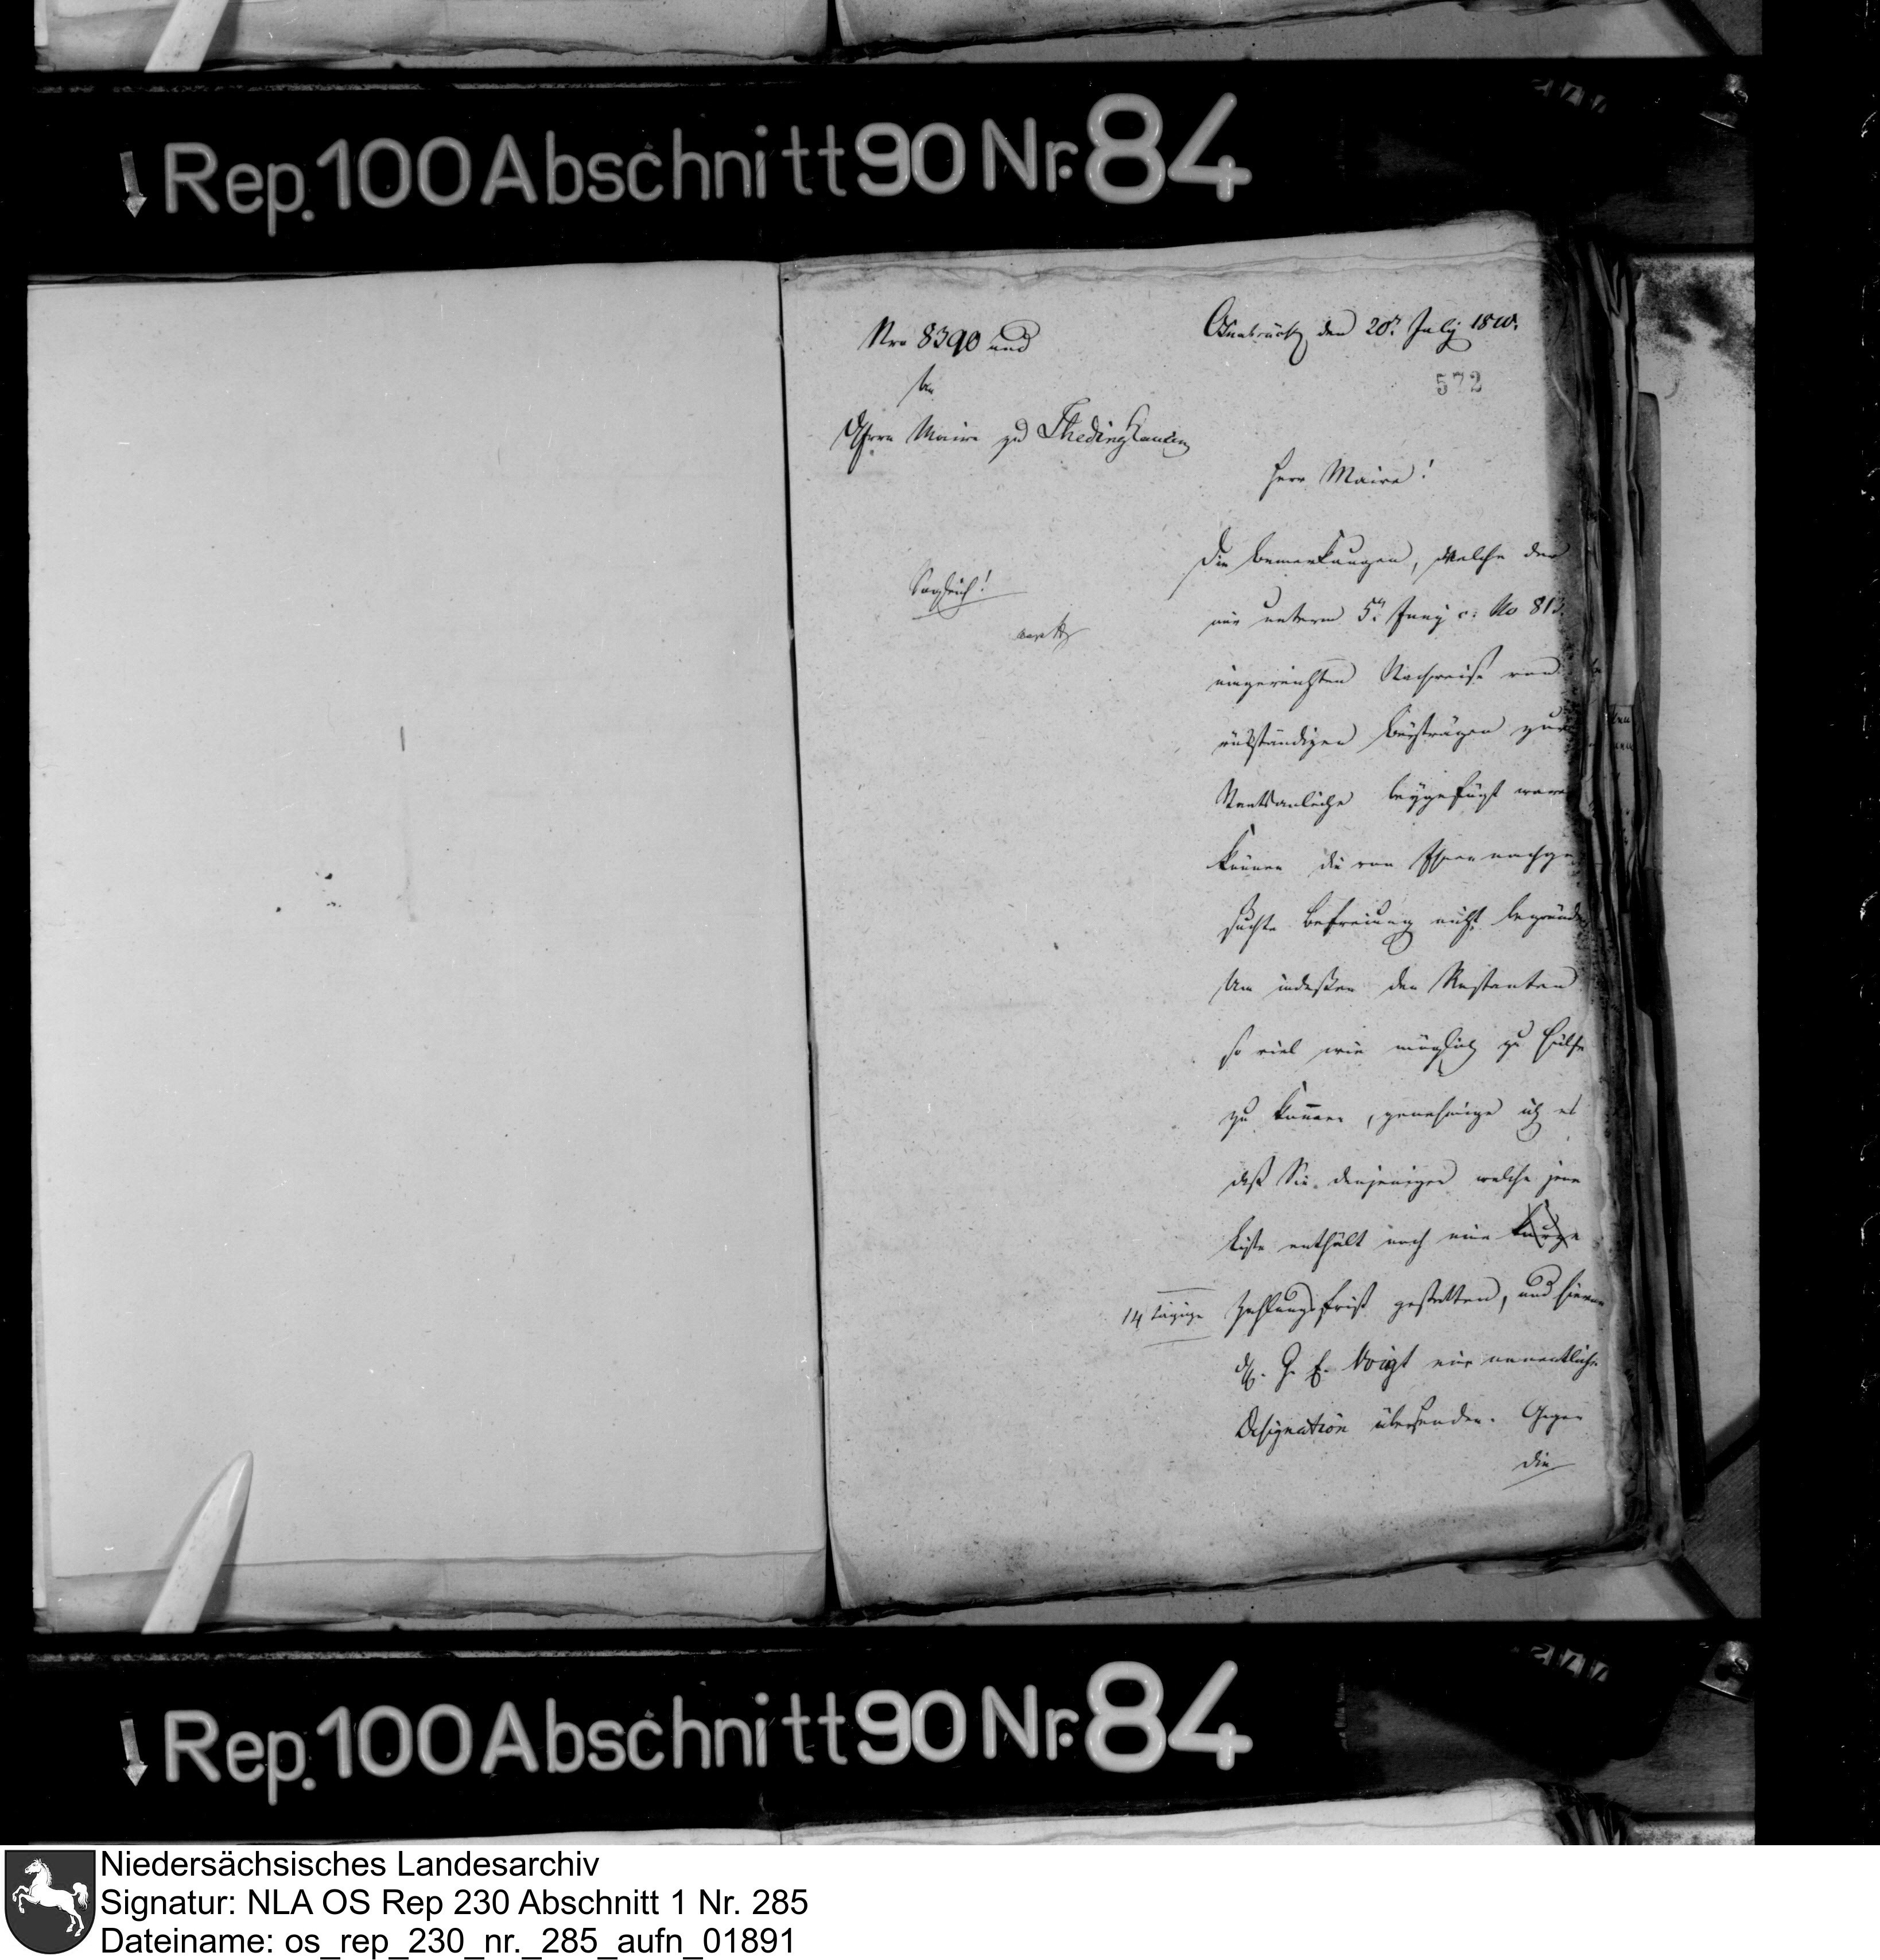 Rep. 100 Abschnitt 90 Nr. 84
Nro 8390 und
Osnabrück den 20t. July 1810.
572
An
Herrn Maire zu Thedinghausen
Herr Maire!
Sogleich!
Die Bemerkungen, welche der
mir unterm 5t. Juny c. No 813.
eingereichten Nachweise von
rückständigen Beyträgen zur
Staatsanleihe beygefügt waren
können die von Ihnen nachge
suchte Befreiung nicht begründen
Um indeßen den Restanten
so viel wie möglich zu Hülfe
zu kommen, genehmige ich es
daß Sie denjenigen welche jene
Liste enthält noch eine kurze
14 tägige Zahlungsfrist gestatten, und hievon
H. G. E. Voigt eine namentliche
Designation übersenden. Gegen
die
Rep. 100 Abschnitt 90 Nr. 84
Niedersächsisches Landesarchiv
Signatur: NLA OS Rep 230 Abschnitt 1 Nr. 285
Dateiname: os_rep_230_nr._285_aufn_01891